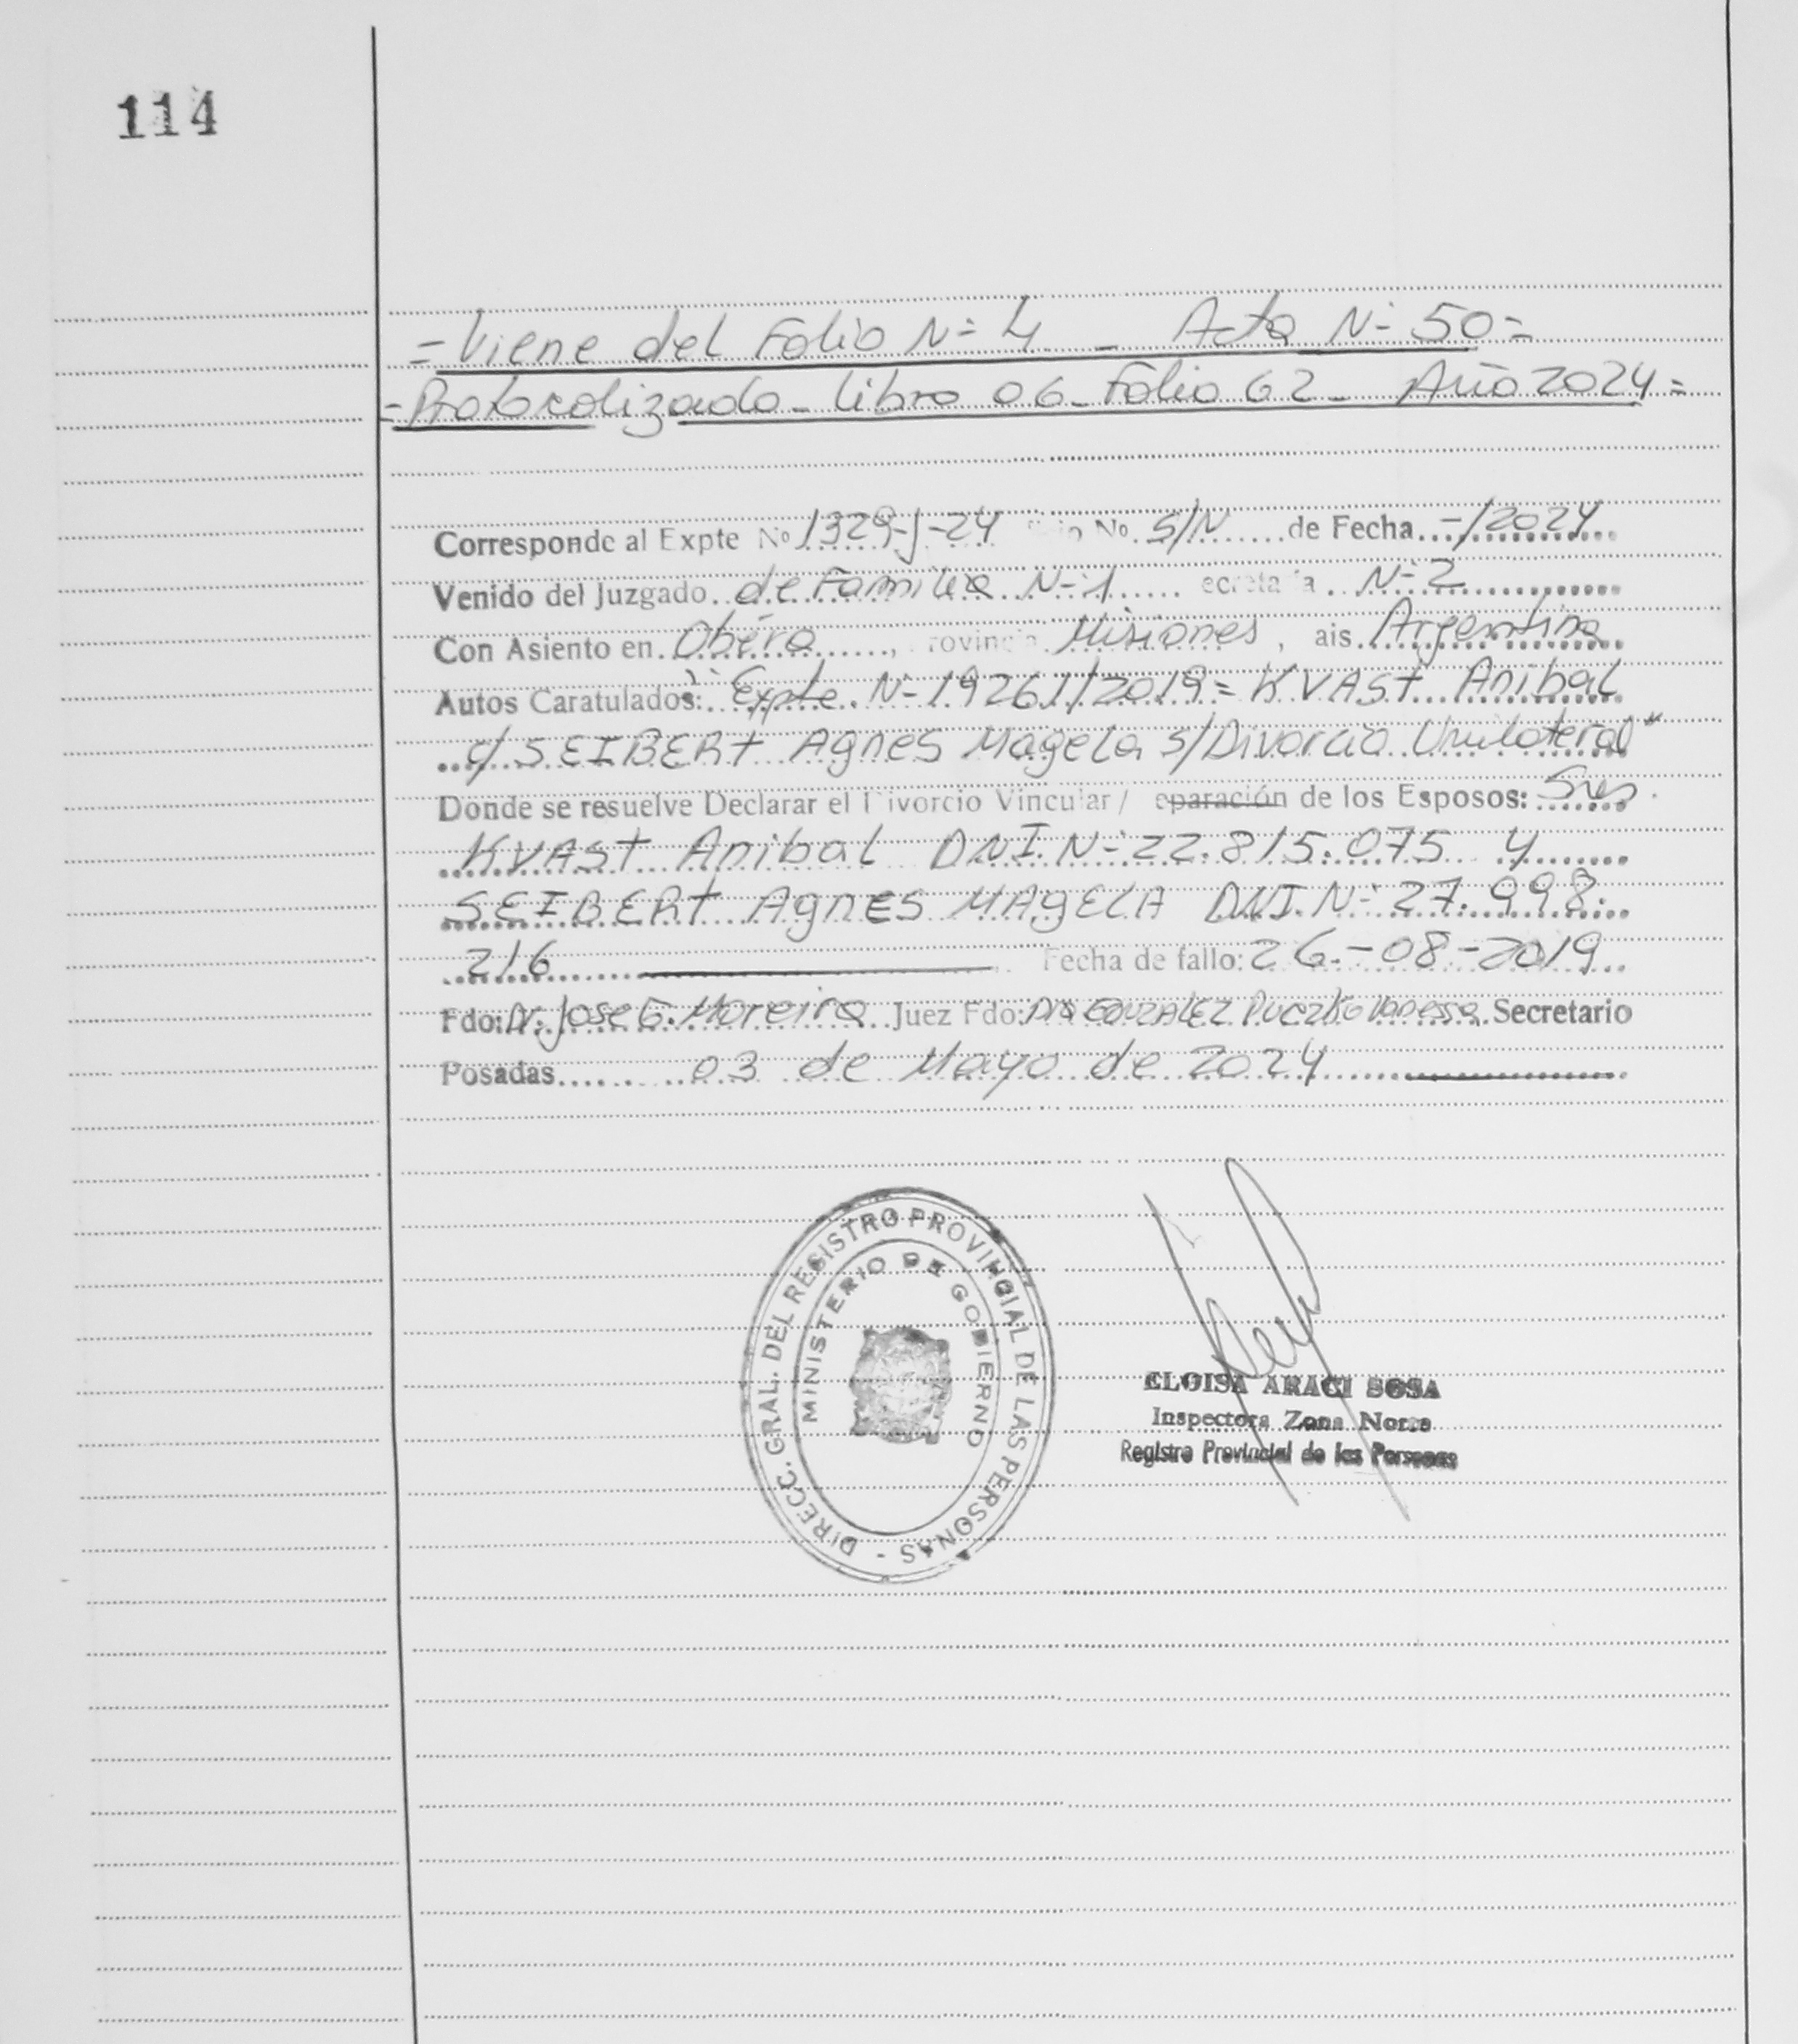 114
= Viene del Folio N= 4 _ Acta N= 50 =
- Protocolizado - libro 06 - Folio 62 - Año 2024 =
Corresponde al Expte Nº 1329-J-24 No. S/N ...... de Fecha.. -/2024
Venido del Juzgado. de Familia N-1 ...... ecretaria .. N=2
Con Asiento en. Oberá ......, rovincia. Misiones , ais. Argentina
Autos Caratulados: "Expte. N= 19261/2019= KVASt Anibal
c/ SEIBERt Agnes Magela s/Divorcio Unilateral"
Donde se resuelve Declarar el Divorcio Vincular/ eparación de los Esposos: Sres.
KVASt Anibal DNI. N=22.815.075 y
SEIBERt AgnES MAgELA DNI. N= 27.998.
216 Fecha de fallo: 26-08-2019
Fdo: Dr. Jose G. Moreira Juez Fdo: Dra GONZALEZ Vanessa Secretario
Posadas...... 03 de Mayo de 2024
DIRECC. GRAL. DEL REGISTRO PROVINCIAL DE LAS PERSONAS -
MINISTERIO DE GOBIERNO
ELOISA ARACI SOSA
Inspectora Zona Norte
Registro Provincial de las Personas